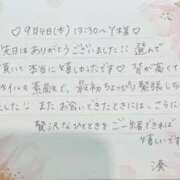 ♡9月4日(木)19:30〜Y様♡
先日はありがとうございました!! 選んで
頂いて本当に嬉しかったです♡ 背が高くて
タイルも素敵で、最初ちょっぴり緊張しち
した!! またお会いできたときには、さらに
贅沢なひとときをご一緒できれば
嬉しいです
湊